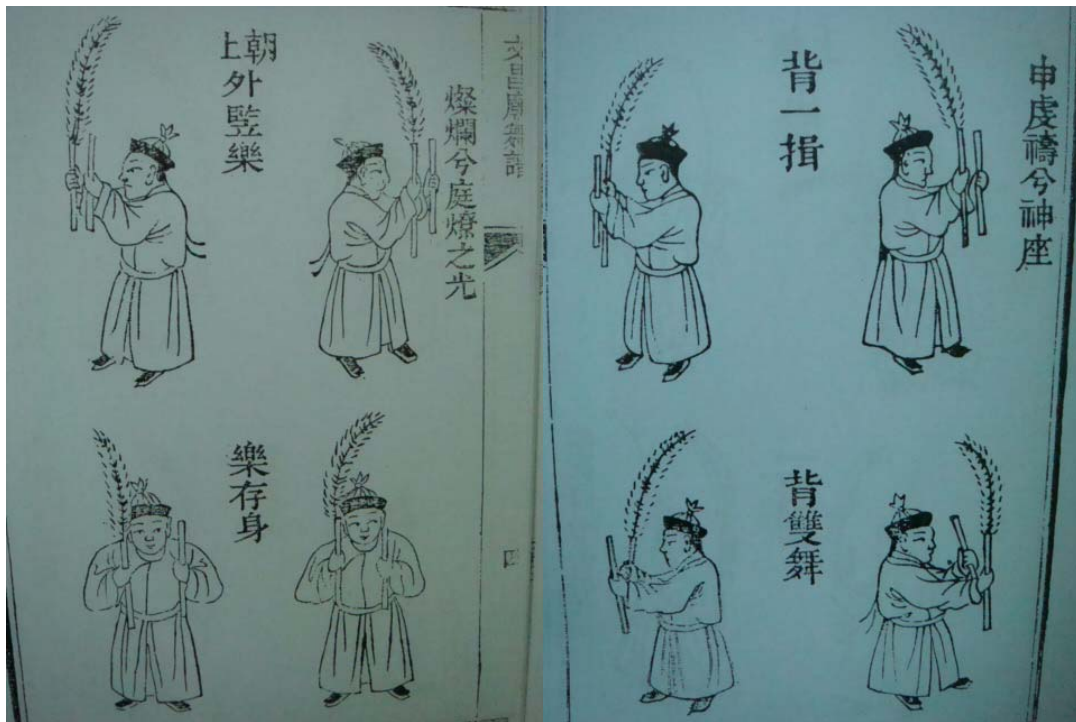 申虔禱兮神座
背一揖
背雙舞
文昌廟
四
燦爛兮庭燎之光
朝上外竪樂
樂存身